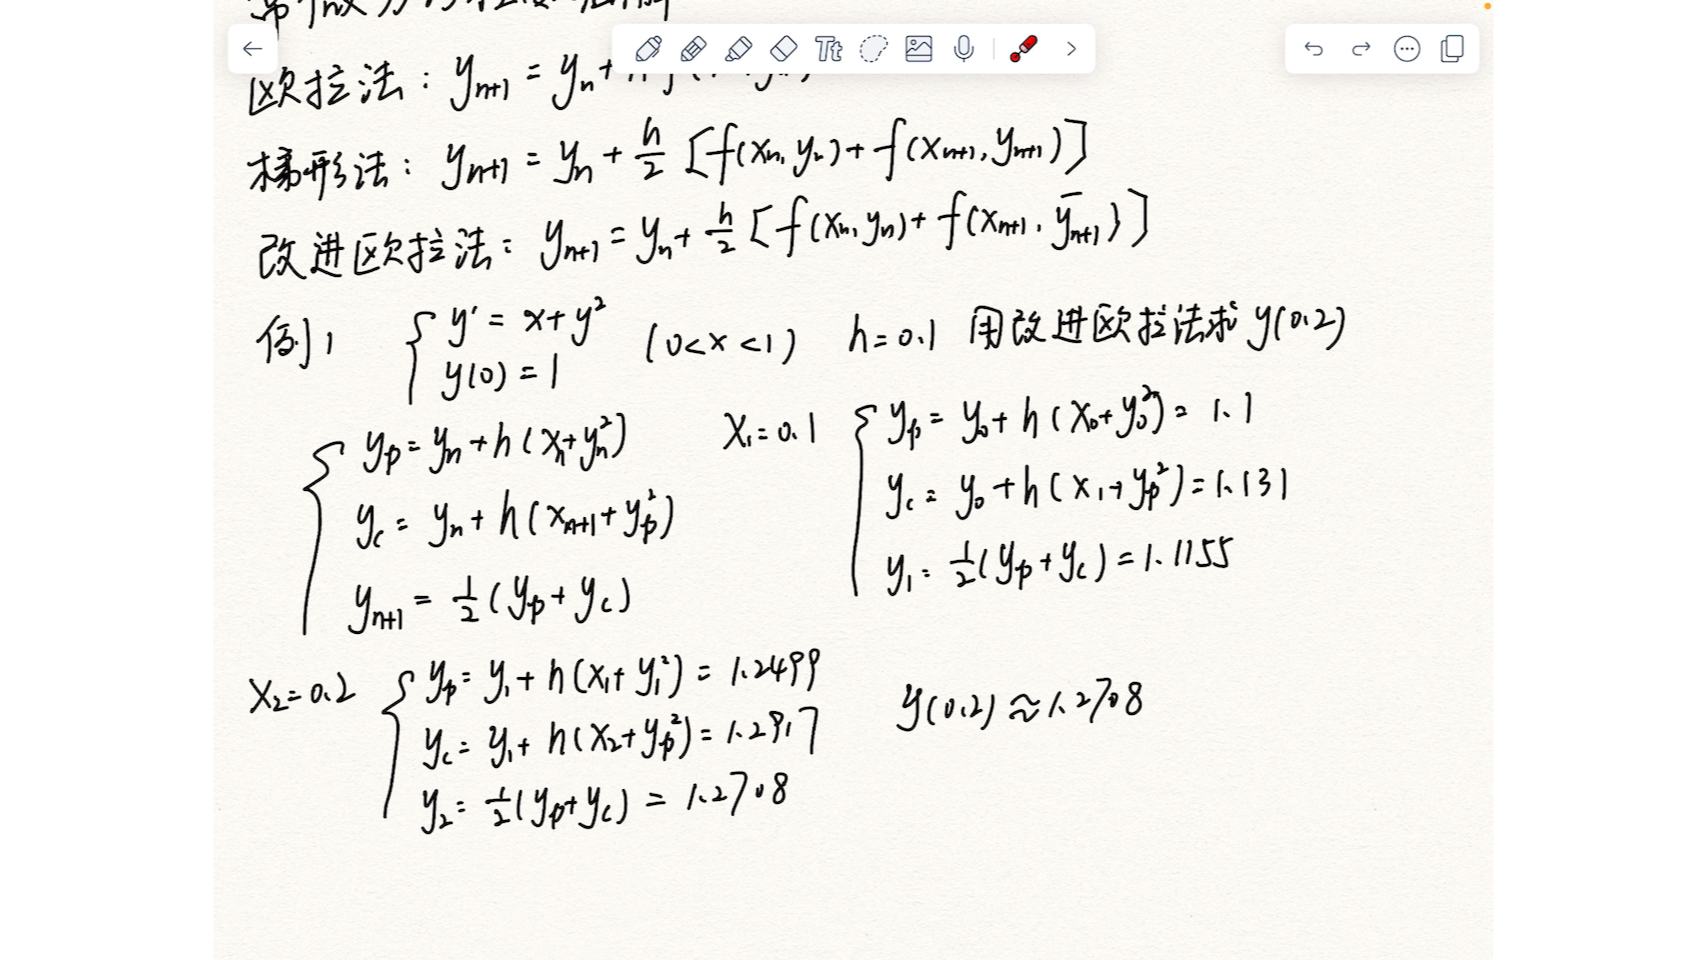 欧拉法: yₙ₊₁ = yₙ +
梯形法: yₙ₊₁ = yₙ + h/2 [f(xₙ, yₙ) + f(xₙ₊₁, yₙ₊₁)]
改进欧拉法: yₙ₊₁ = yₙ + h/2 [f(xₙ, yₙ) + f(xₙ₊₁, ȳₙ₊₁)]
例1 { y' = x + y² (0<x<1) h=0.1 用改进欧拉法求 y(0.2)
y(0) = 1
{ yp = yₙ + h(xₙ + yₙ²)
yc = yₙ + h(xₙ₊₁ + yp²)
yₙ₊₁ = 1/2 (yp + yc)
x₁ = 0.1 { yp = y₀ + h(x₀ + y₀²) = 1.1
yc = y₀ + h(x₁ + yp²) = 1.131
y₁ = 1/2 (yp + yc) = 1.1155
x₂ = 0.2 { yp = y₁ + h(x₁ + y₁²) = 1.2499
yc = y₁ + h(x₂ + yp²) = 1.2917
y₂ = 1/2 (yp + yc) = 1.2708
y(0.2) ≈ 1.2708
Tt